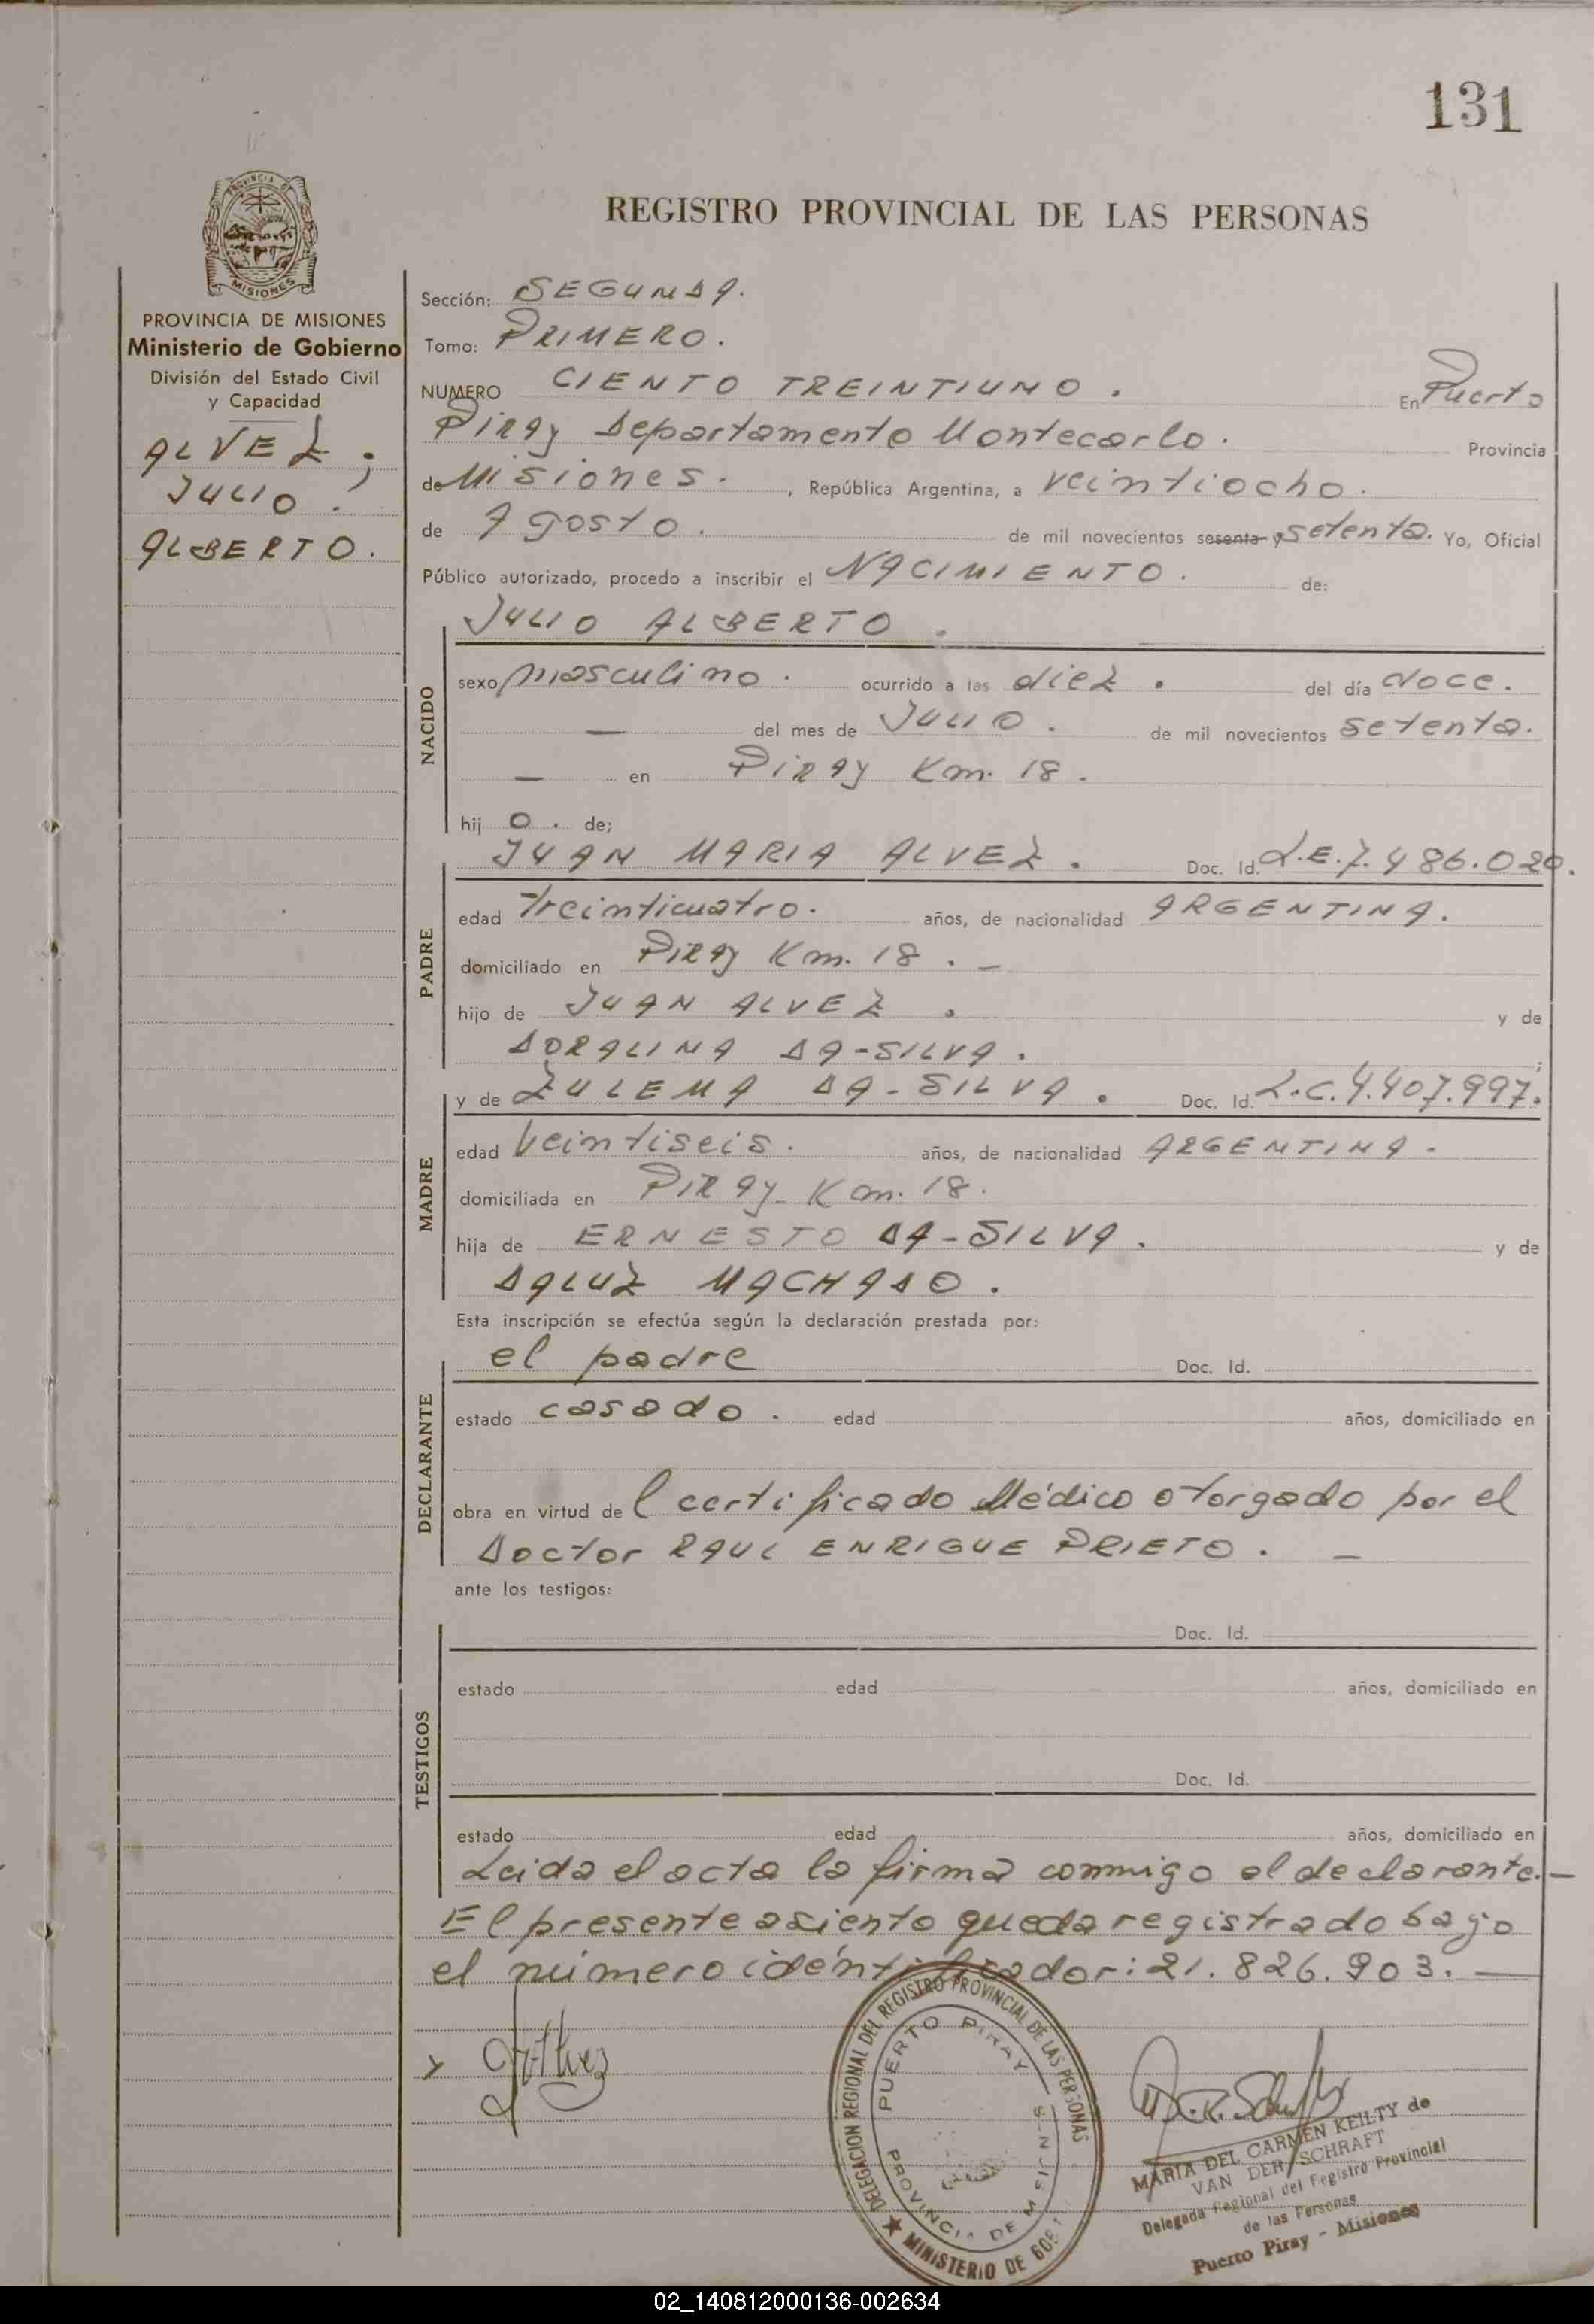 131
PROVINCIA DE
MISIONES
REGISTRO PROVINCIAL DE LAS PERSONAS
PROVINCIA DE MISIONES
Ministerio de Gobierno
División del Estado Civil
y Capacidad
ALVEZ ;
JULIO .
ALBERTO.
Sección: SEGUNDA.
Tomo: PRIMERO.
NUMERO CIENTO TREINTIUNO . En Puerto
Piray Departamento Montecarlo. Provincia
de Misiones. , República Argentina, a veintiocho.
de Agosto. de mil novecientos sesenta y setenta. Yo, Oficial
Público autorizado, procedo a inscribir el NACIMIENTO. de:
JULIO ALBERTO .
NACIDO
sexo masculino. ocurrido a las diez . del día doce.
— del mes de JULIO . de mil novecientos setenta.
— en Piray Km. 18 .
hij o . de;
JUAN MARIA ALVEZ . Doc. Id. L.E.7.486.020.
PADRE
edad treinticuatro. años, de nacionalidad ARGENTINA.
domiciliado en Piray Km. 18 . —
hijo de JUAN ALVEZ . y de
DORALINA DA-SILVA .
y de ZULEMA DA-SILVA . Doc. Id. L.C.4.407.997.
MADRE
edad veintiseis. años, de nacionalidad ARGENTINA.
domiciliada en Piray Km. 18.
hija de ERNESTO DA-SILVA . y de
DALUZ MACHADO .
Esta inscripción se efectúa según la declaración prestada por:
el padre Doc. Id.
DECLARANTE
estado casado . edad años, domiciliado en
obra en virtud de l certificado Médico otorgado por el
Doctor RAUL ENRIQUE PRIETO . —
ante los testigos:
Doc. Id.
TESTIGOS
estado edad años, domiciliado en
Doc. Id.
estado edad años, domiciliado en
Leida el acta la firma conmigo el declarante.—
El presente asiento queda registrado bajo
el número idéntificador: 21.826.903. —
DELEGACION REGIONAL DEL REGISTRO PROVINCIAL DE LAS PERSONAS
PUERTO PIRAY
PROVINCIA DE MISIONES
★ MINISTERIO DE GOB
MARIA DEL CARMEN KEILTY de
VAN DER SCHRAFT
Delegada Regional del Registro Provincial
de las Personas
Puerto Piray - Misiones
02_140812000136-002634